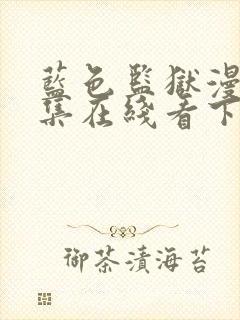 藍色監獄漫
集在綫看下
御茶漬海苔